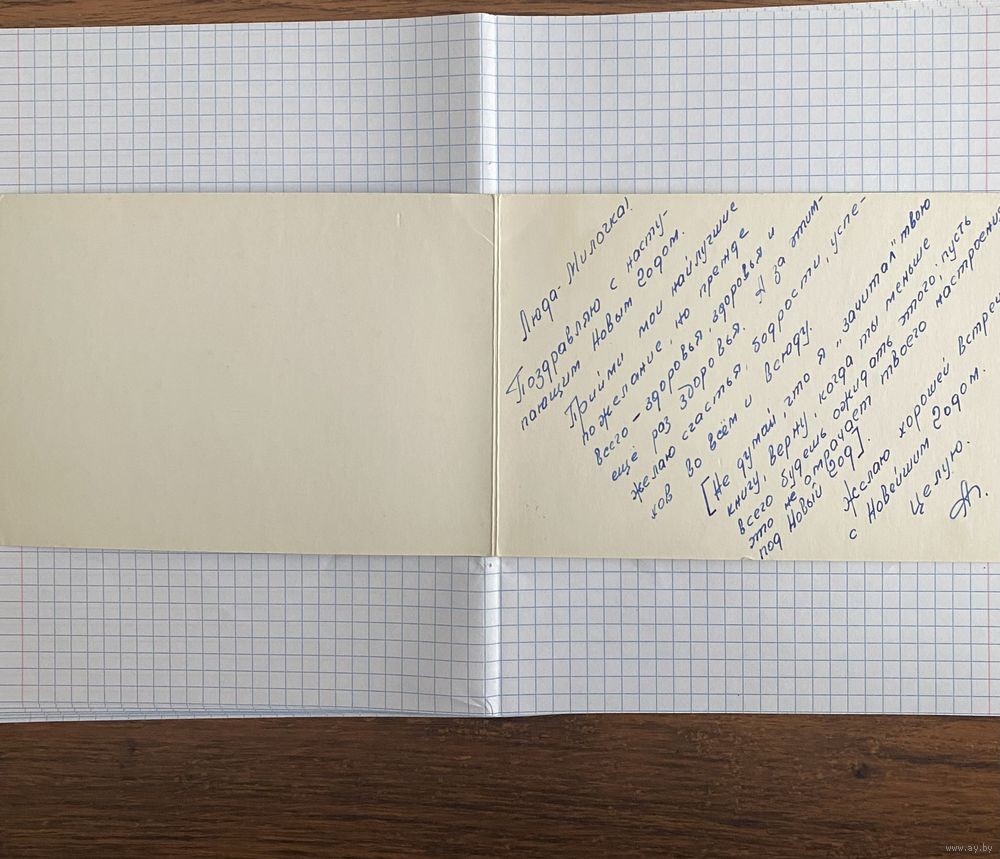 Люда-Милочка!
Поздравляю с насту-
пающим Новым Годом.
Прийми мои найлучшие
пожелание, но прежде
всего - здоровья, здоровья и
ещё раз здоровья. А за этим-
желаю счастья, бодрости, успе-
хов во всём и всюду.
[Не думай, что я „зачитал" твою
книгу, верну, когда ты меньше
всего будешь ожидать этого; пусть
это не омрачает твоего настроения
под Новый Год].
Желаю хорошей встречи
с Новейшим Годом.
Целую.
www.ay.by